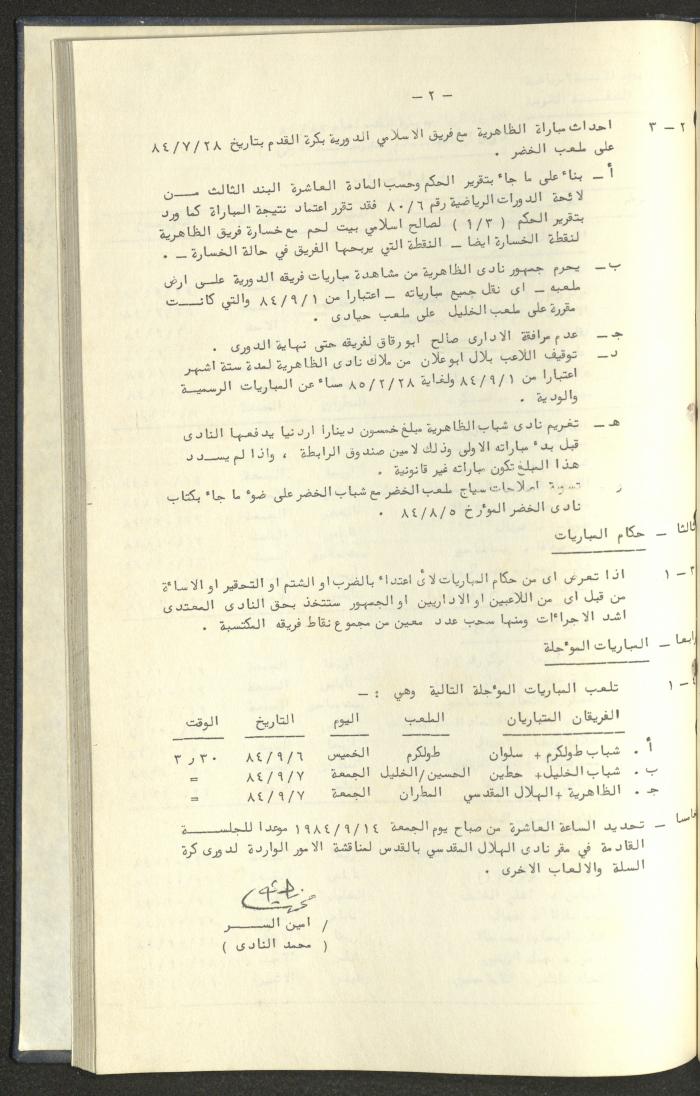 - ٢ -
٢ - ٣ احداث مباراة الظاهرية مع فريق الاسلامي الدورية بكرة القدم بتاريخ ٨٤/٧/٢٨
على ملعب الخضر .
أ - بناء على ما جاء بتقرير الحكم وحسب المادة العاشرة البند الثالث مـــن
لائحة الدورات الرياضية رقم ٨٠/٦ فقد تقرر اعتماد نتيجة المباراة كما ورد
بتقرير الحكم ( ١/٣ ) لصالح اسلامي بيت لحم مع خسارة فريق الظاهرية
لنقطة الخسارة ايضا - النقطة التي يربحها الفريق في حالة الخسارة - .
ب - يحرم جمهور نادى الظاهرية من مشاهدة مباريات فريقه الدورية علـــى ارض
ملعبه - اى نقل جميع مبارياته - اعتبارا من ٨٤/٩/١ والتي كانـــت
مقررة على ملعب الخليل على ملعب حيادى .
جـ - عدم مرافقة الادارى صالح ابو رقاق لفريقه حتى نهاية الدورى .
د - توقيف اللاعب بلال ابو علان من ملاك نادى الظاهرية لمدة ستة اشهر
اعتبارا من ٨٤/٩/١ ولغاية ٨٥/٢/٢٨ مساء عن المباريات الرسميـــة
والودية .
هـ - تغريم نادى شباب الظاهرية مبلغ خمسون دينارا اردنيا يدفعها النادى
قبل بدء مباراته الاولى وذلك لامين صندوق الرابطة ، واذا لم يســـدد
هذا المبلغ تكون مباراته غير قانونية .
ز تسوية اصلاحات سياج ملعب الخضر مع شباب الخضر على ضوء ما جاء بكتاب
نادى الخضر المؤرخ ٨٤/٨/٥ .
ثالثا - حكام المباريات
٣ - ١ اذا تعرض اى من حكام المباريات لأى اعتداء بالضرب او الشتم او التحقير او الاساءة
من قبل اى من اللاعبين او الاداريين او الجمهور ستتخذ بحق النادى المعتدى
اشد الاجراءات ومنها سحب عدد معين من مجموع نقاط فريقه المكتسبة .
رابعا - المباريات المؤجلة
٤ - ١ تلعب المباريات المؤجلة التالية وهي : -
الفريقان المتباريان الملعب اليوم التاريخ الوقت
أ . شباب طولكرم + سلوان طولكرم الخميس ٨٤/٩/٦ ٣٠ر٣
ب . شباب الخليل + حطين الحسين/الخليل الجمعة ٨٤/٩/٧ =
جـ . الظاهرية + الهلال المقدسي المطران الجمعة ٨٤/٩/٧ =
خامسا - تحديد الساعة العاشرة من صباح يوم الجمعة ١٩٨٤/٩/١٤ موعدا للجلســـة
القادمة في مقر نادى الهلال المقدسي بالقدس لمناقشة الامور الواردة لدورى كرة
السلة والالعاب الاخرى .
/ امين الســـر
( محمد النادى )